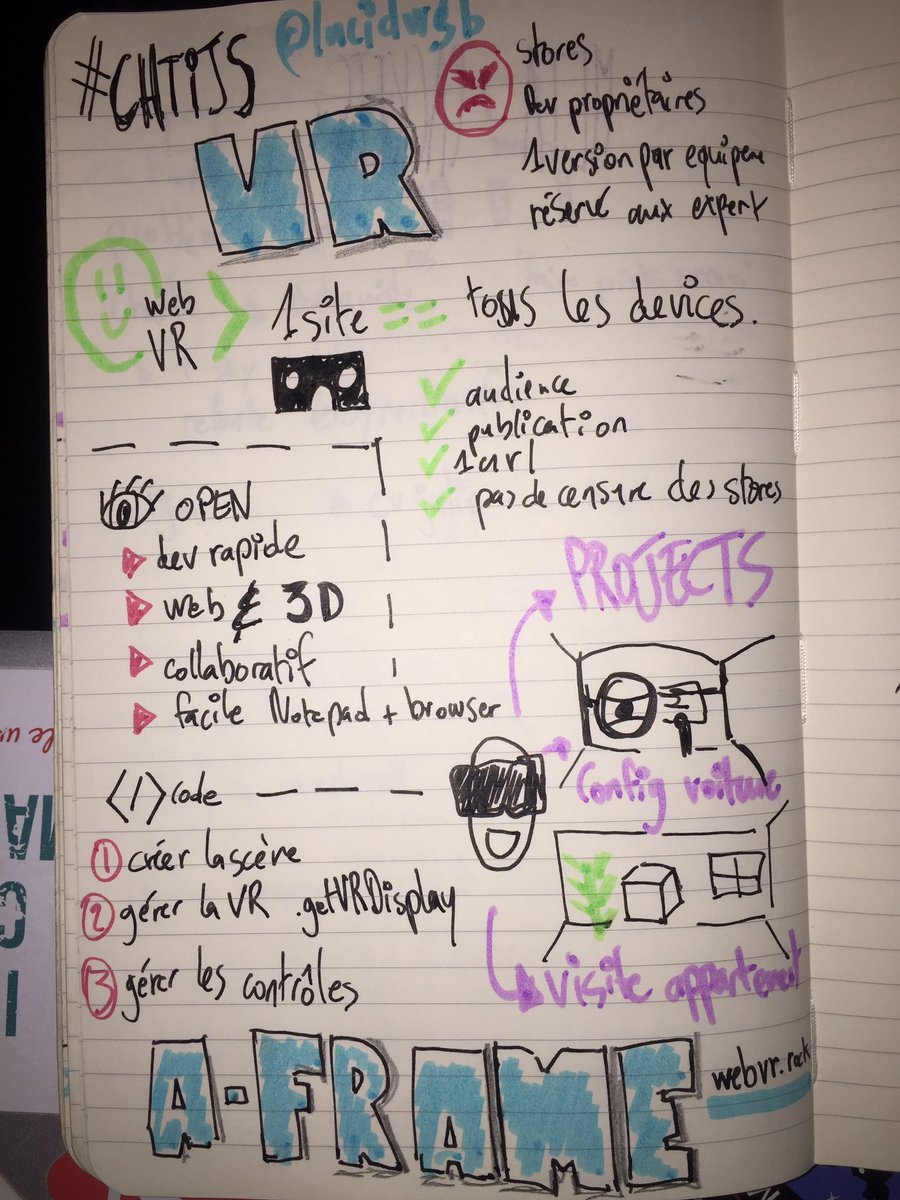 #CHTIJS @lucidweb
VR
stores
Dev propriétaires
1 version par equipem
réservé aux expert
web
VR
> 1 site == tous les devices.
audience
publication
1 url
pas de censure des stores
OPEN
dev rapide
web & 3D
collaboratif
facile Notepad + browser
PROJECTS
Config voiture
</>code
1 créer la scène
2 gérer la VR .getVRDisplay
3 gérer les contrôles
visite appartement
A-FRAME
webvr.rock